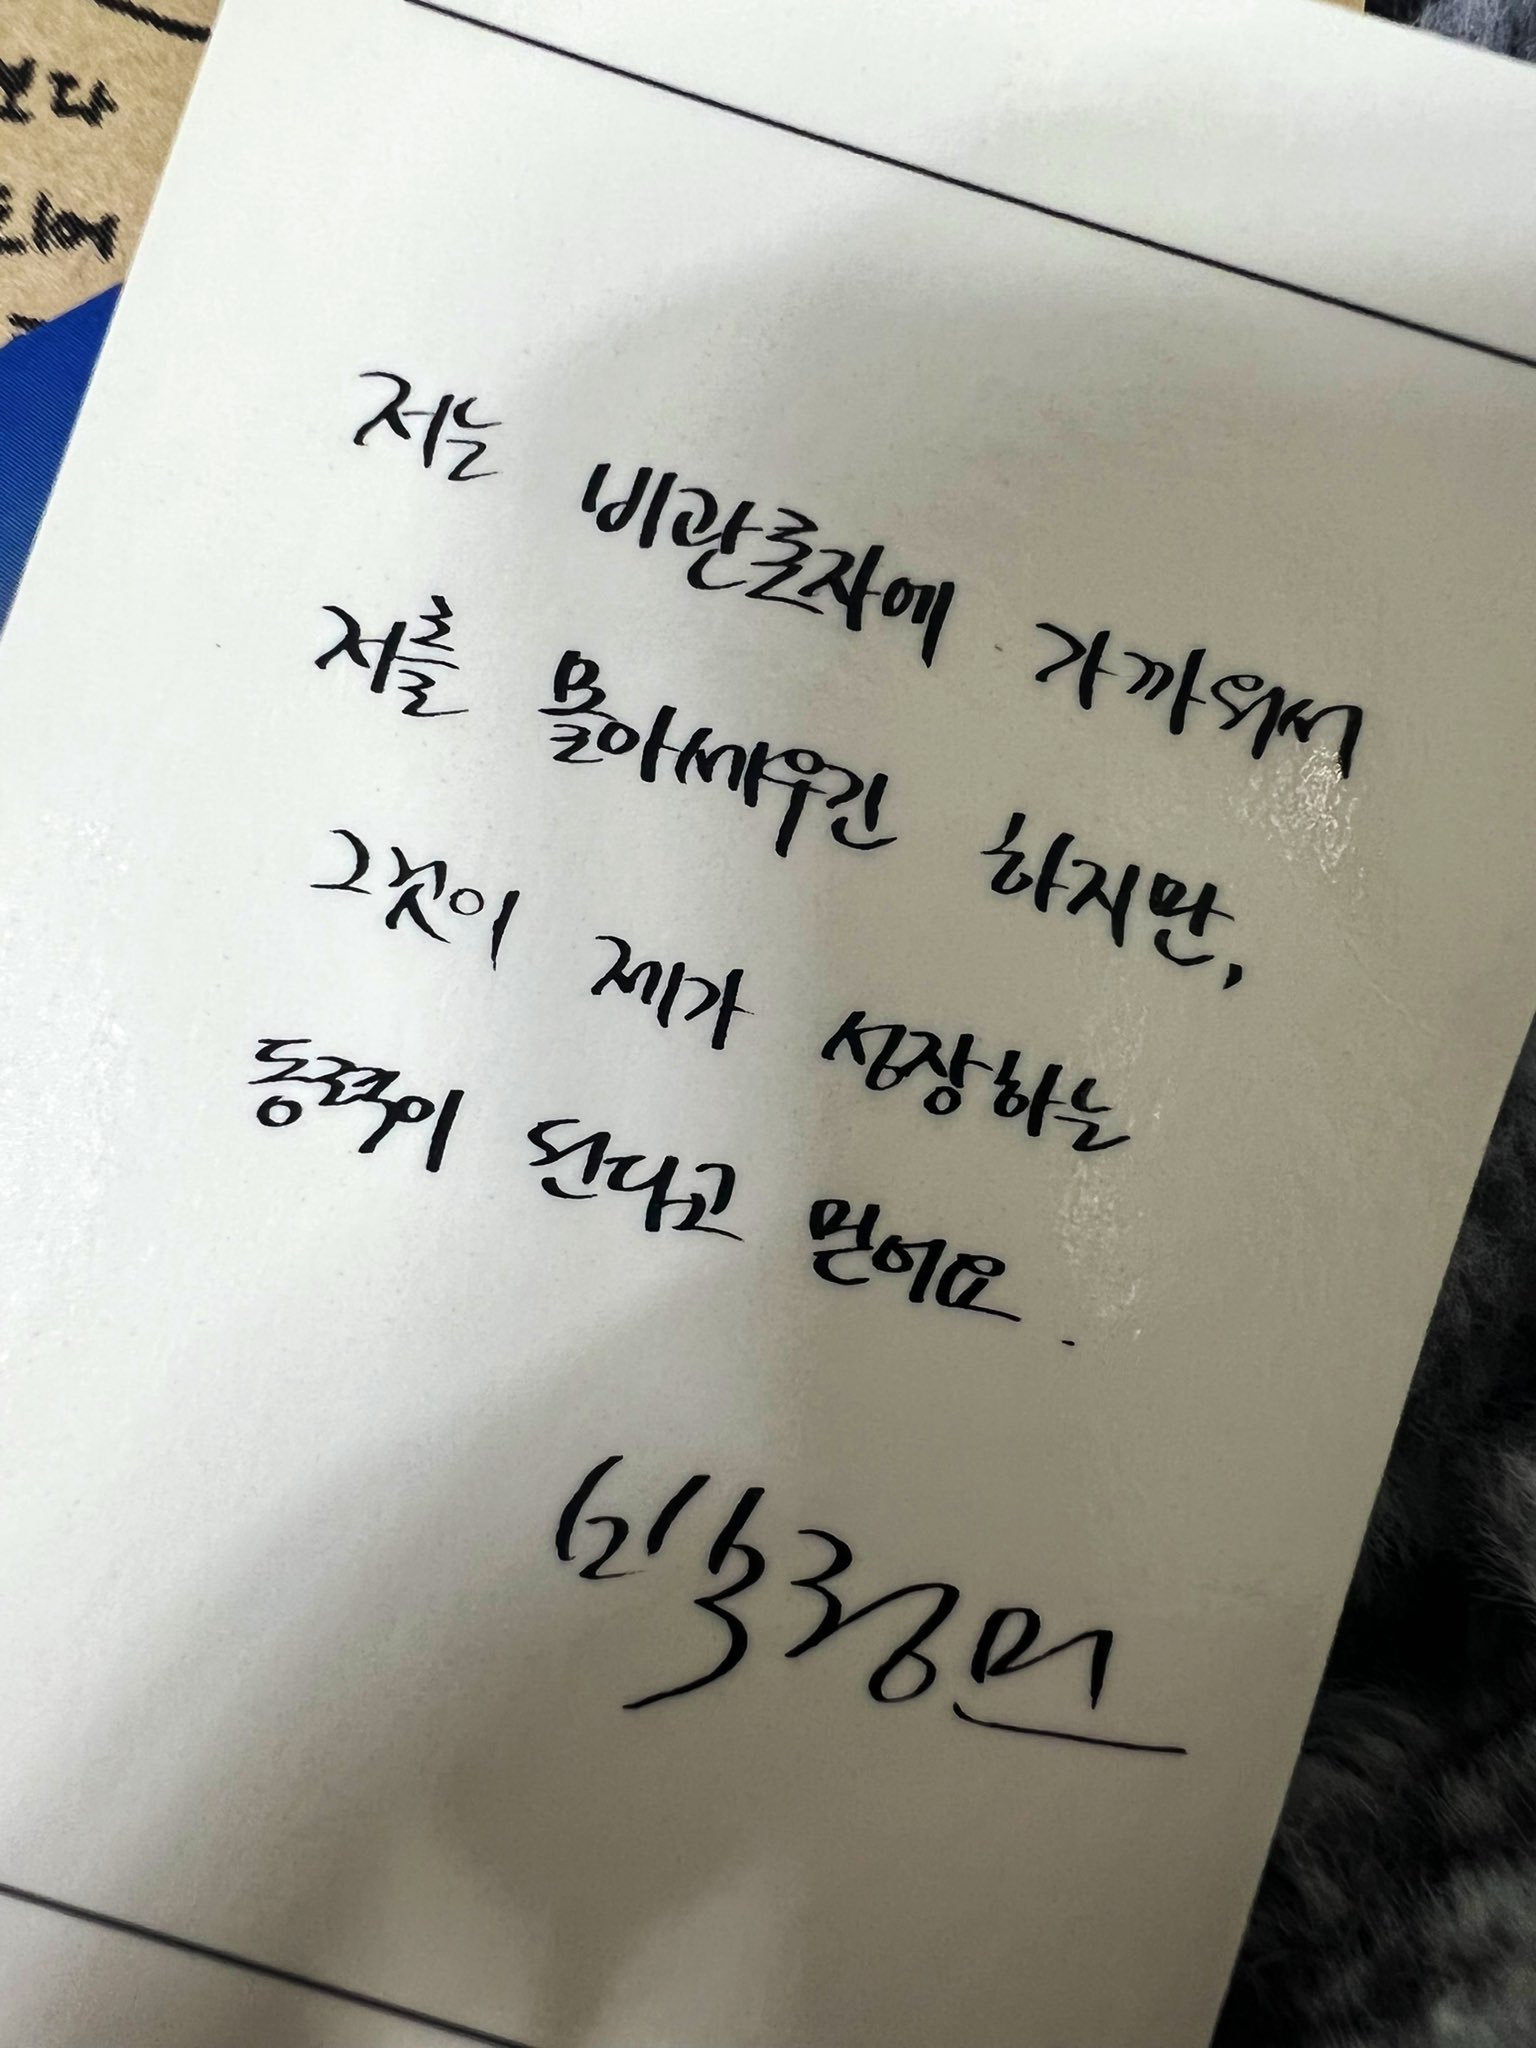 보다
저는 비관론자에 가까워서
저를 몰아세우긴 하지만,
그것이 제가 성장하는
동력이 된다고 믿어요.
박정민